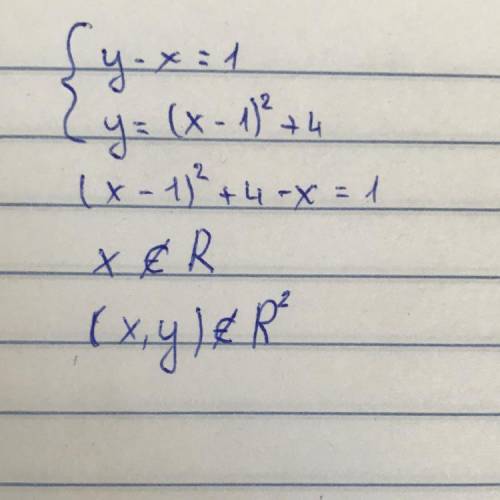 { y - x = 1
y = (x - 1)² + 4
(x - 1)² + 4 - x = 1
x ∉ R
(x, y) ∉ R²